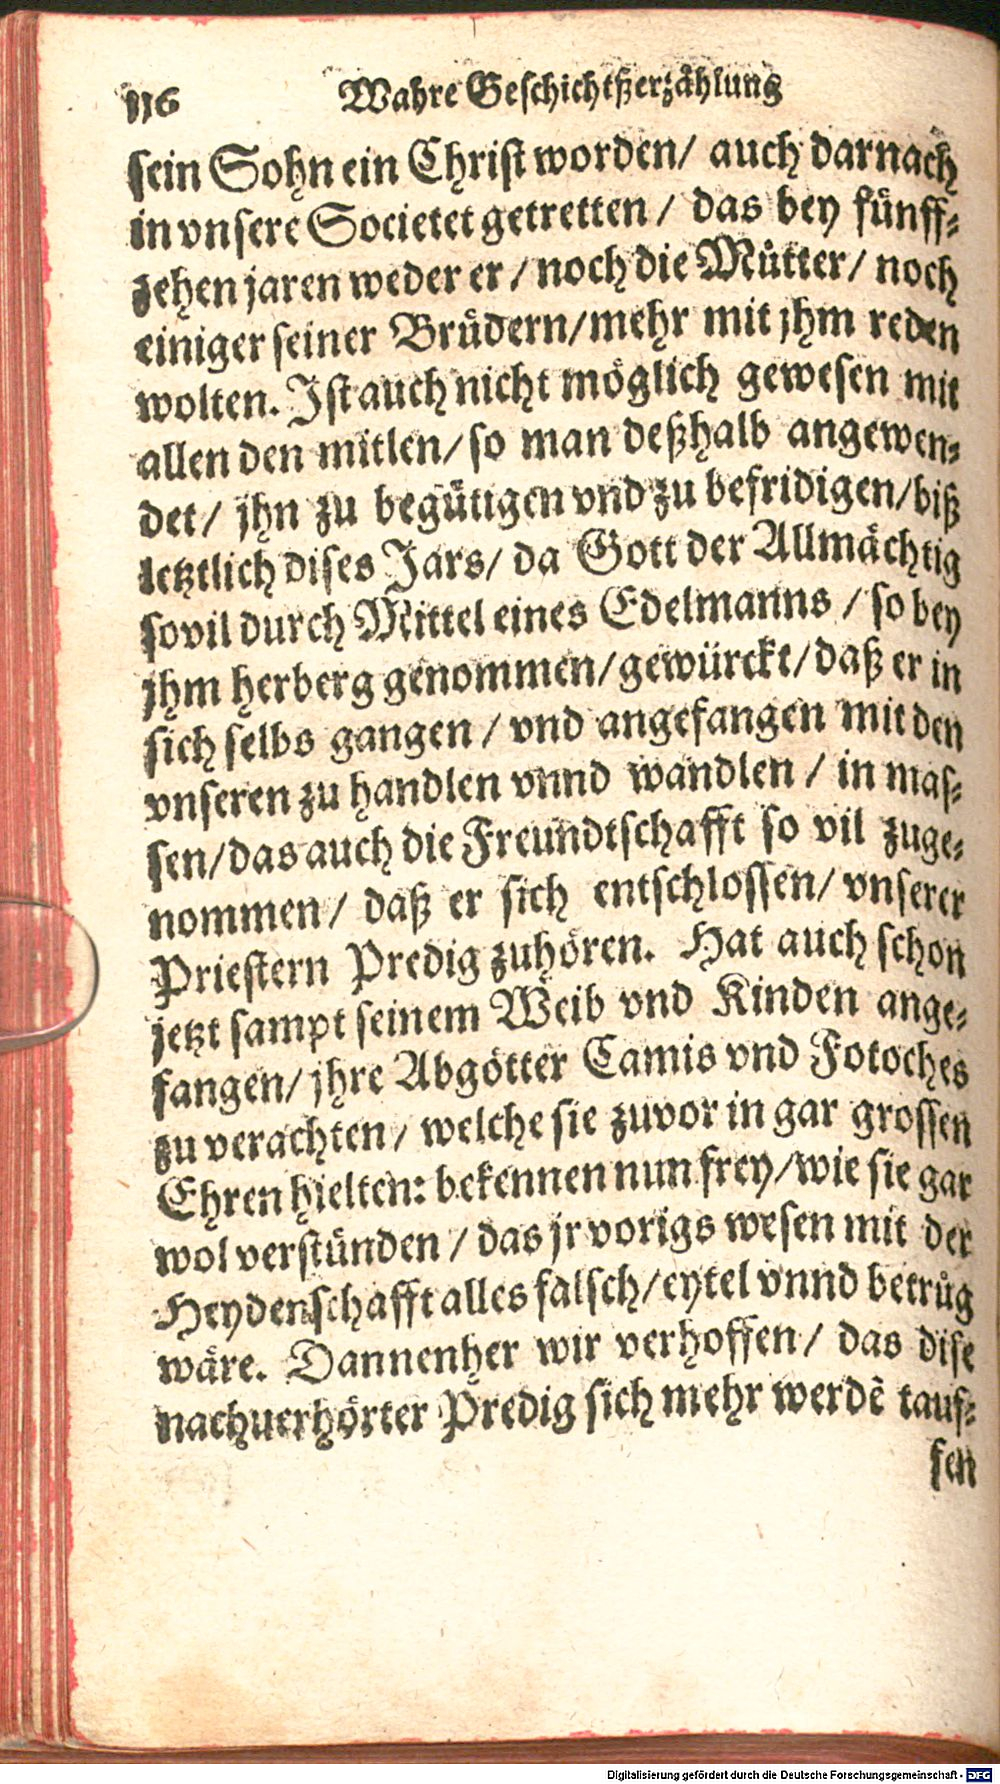 116 Wahre Geschichtßerzählung
sein Sohn ein Christ worden/ auch darnach
in vnsere Societet getretten / das bey fünff⸗
zehen jaren weder er / noch die Můtter/ noch
einiger seiner Brüdern/mehr mit jhm reden
wolten. Ist auch nicht möglich gewesen mit
allen den mitlen/ so man deßhalb angewen⸗
det/ jhn zu begütigen vnd zu befridigen/biß
letztlich dises Jars/ da Gott der Allmächtig
sovil durch Mittel eines Edelmanns / so bey
jhm herberg genommen/gewürckt/daß er in
sich selbs gangen / vnd angefangen mit den
vnseren zu handlen vnnd wandlen / in mas⸗
sen/das auch die Freundtschafft so vil zuge⸗
nommen/ daß er sich entschlossen/ vnserer
Priestern Predig zuhören. Hat auch schon
jetzt sampt seinem Weib vnd Kinden ange⸗
fangen/ jhre Abgötter Camis vnd Fotoches
zu verachten/ welche sie zuvor in gar grossen
Ehren hielten: bekennen nun frey/wie sie gar
wol verstünden / das jr vorigs wesen mit der
Heydenschafft alles falsch/eytel vnnd betrůg
wäre. Dannenher wir verhoffen/ das dise
nachuerhörter Predig sich mehr werdẽ tauf⸗
fen
Digitalisierung gefördert durch die Deutsche Forschungsgemeinschaft - DFG